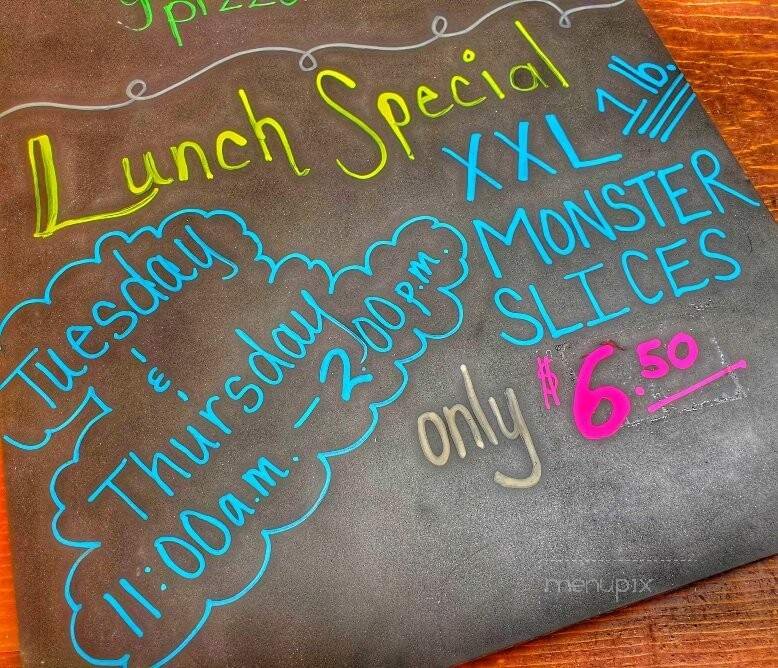 pizza
Lunch Special
XXL 1 lb.
MONSTER
SLICES
Tuesday
&
Thursday
11:00a.m. - 2:00p.m.
only $6.50
menupix